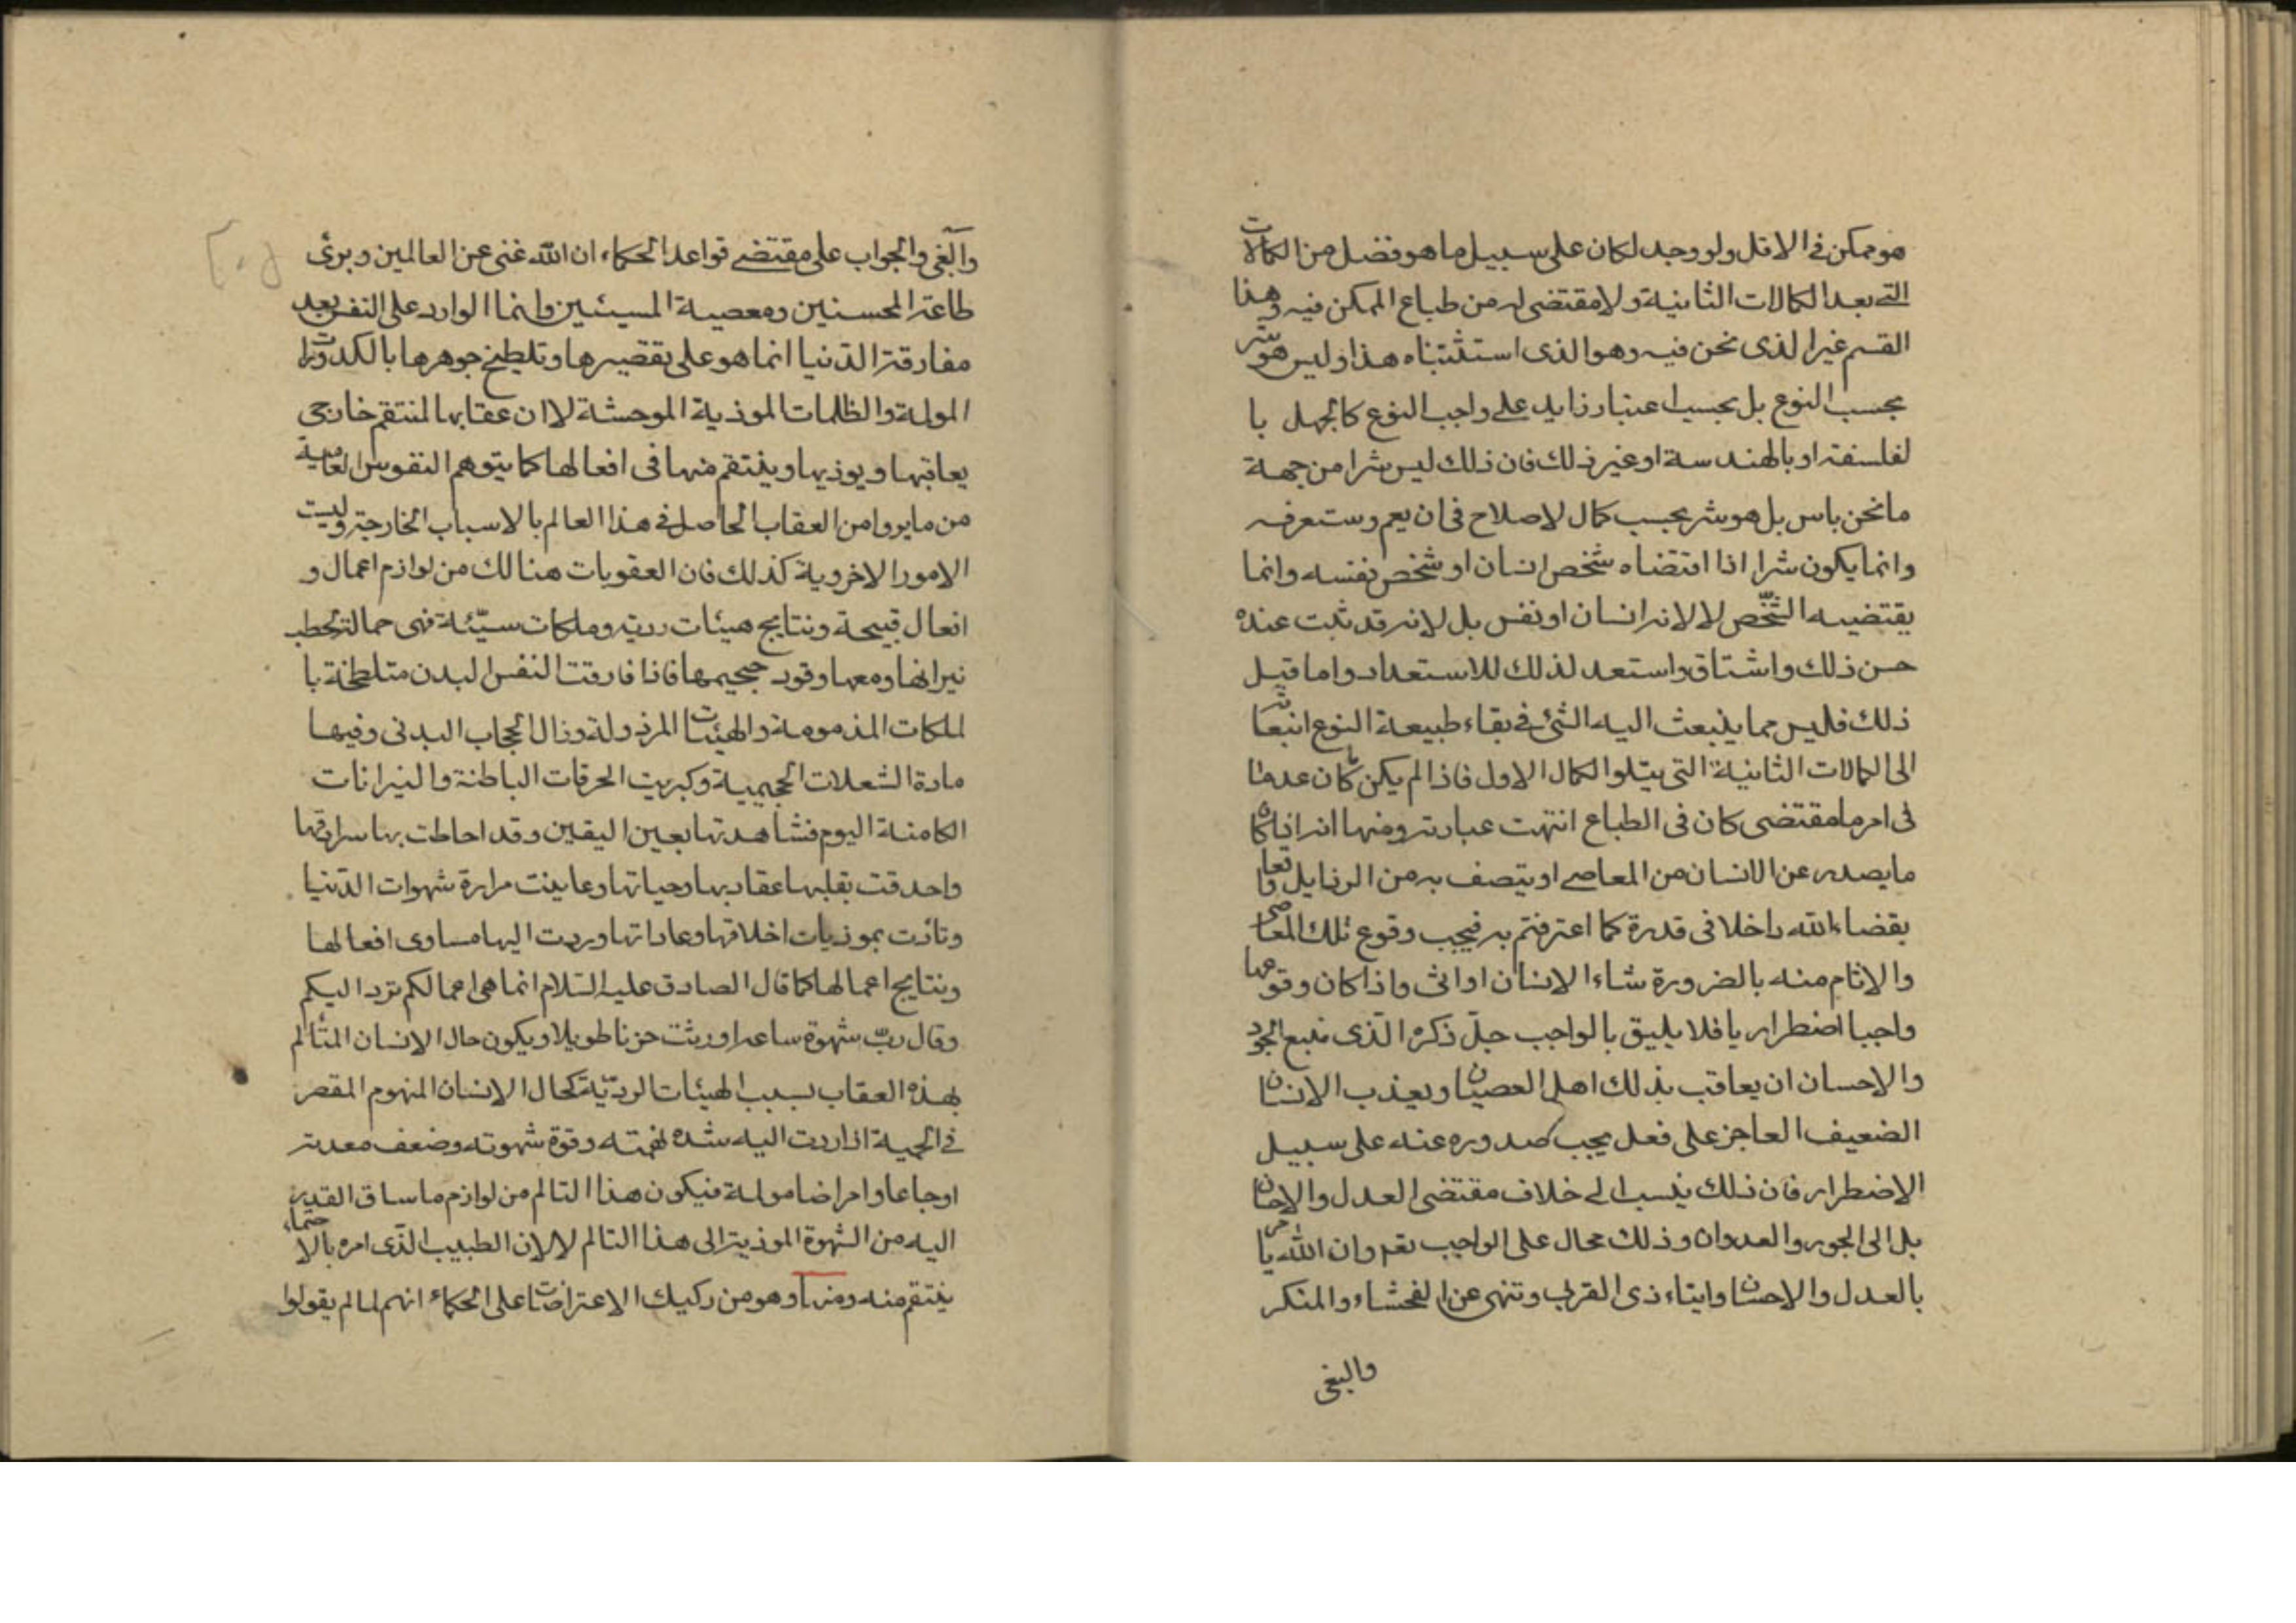 هو ممكن في الاقل ولو وجد لكان على سبيل ما هو فضل من الكمالات
التي بعد الكمالات الثانية ولا مقتضى له من طباع الممكن فيه وهذا
القسم غير الذى نحن فيه وهو الذى استثنيناه هذا وليس هو شر
بحسب النوع بل بحسب اعتبار زايد على واجب النوع كالجهل با
لفلسفة او بالهندسة او غير ذلك فان ذلك ليس شرا من جهة
ما نحن باس بل هو شر بحسب كمال لاصلاح فى ان يعم وستعرفه
وانما يكون شرا اذا اقتضاه شخص انسان او شخص نفسه وانما
يقتضيه الشخص لا لانه انسان او نفس بل لانه قد ثبت عنده
حسن ذلك واشتاق واستعد لذلك للاستعداد واما قبل
ذلك فليس مما ينبعث اليه الشئ في بقاء طبيعة النوع انبعاثه
الى الكمالات الثانية التى يتلوا الكمال الاول فاذا لم يكن كان عدما
فى امر ما مقتضى كان فى الطباع انتهت عبارته ومنها انه اذا كان
ما يصدر عن الانسان من المعاصى او يتصف به من الرذايل واقعا
بقضاء الله داخلا فى قدره كما اعترفتم به فيجب وقوع تلك المعاصى
والاثام منه بالضرورة شاء الانسان او ابى واذا كان وقوعها
واجبا اضطراريا فلا يليق بالواجب جلّ ذكره الّذى منبع الجود
والاحسان ان يعاقب بذلك اهل العصيان ويعذب الانسان
الضعيف العاجز على فعل يجب صدوره عنه على سبيل
الاضطرار فان ذلك ينسب الى خلاف مقتضى العدل والاحسان
بل الى الجور والعدوان وذلك محال على الواجب تعم وان الله يامر
بالعدل والاحسان وايتاء ذى القربى وتنهى عن الفحشاء والمنكر
والبغى
والبغى والجواب على مقتضى قواعد الحكماء ان الله غنى عن العالمين وبرئ
طاعة المحسنين ومعصية المسيئين وانما الوارد على النفس بعد
مفارقة الدّنيا انما هو على تقصيرها وتلطيخ جوهرها بالكدورات
المولمة والظلمات الموذية الموحشة لا ان عقابها لمنتقم خارجى
يعاقبها ويوذيها وينتقم منها فى افعالها كما يتوهم النفوس العامية
من ما يروا من العقاب الحاصل فى هذا العالم بالاسباب الخارجة وليست
الامور الاخروية كذلك فان العقوبات هنالك من لوازم اعمال و
افعال قبيحة ونتايج هيئات رديه وملكات سيّئة فهى حمالة لحطب
نيرانها ومعها وقود جحيمها فاذا فارقت النفس البدن متلطخة با
لملكات المذمومة والهيئات المرذولة وزال الحجاب البدنى وفيها
مادة الشعلات الجحيمية وكبريت الحرقات الباطنة والنيرانات
الكامنة اليوم فشاهدتها بعين اليقين وقد احاطت بها سرادقها
واحدقت بقلبها عقاربها وحياتها وعاينت مرارة شهوات الدّنيا
وتاذت بموذيات اخلاقها وعاداتها وردت اليها مساوى افعالها
ونتايج اعمالها كما قال الصادق عليه السّلام انما هى اعمالكم ترد اليكم
وقال ربّ شهوة ساعة اورثت حزنا طويلا ويكون حال الانسان المتألم
بهذه العقاب بسبب الهيئات الرديّة كحال الانسان المنهوم المقصر
في الحمية اذا ردت اليه شده نهمته وقوة شهوته وضعف معدته
اوجاعا وامراضا مولمة فيكون هذا التالم من لوازم ما ساق القدر
اليه من الشهوة الموذية الى هذا التالم لا لان الطبيب الذى امره بالاحتماء
ينتقم منه ومنها وهو من ركيك الاعتراضات على الحكماء انهم لما لم يقولوا